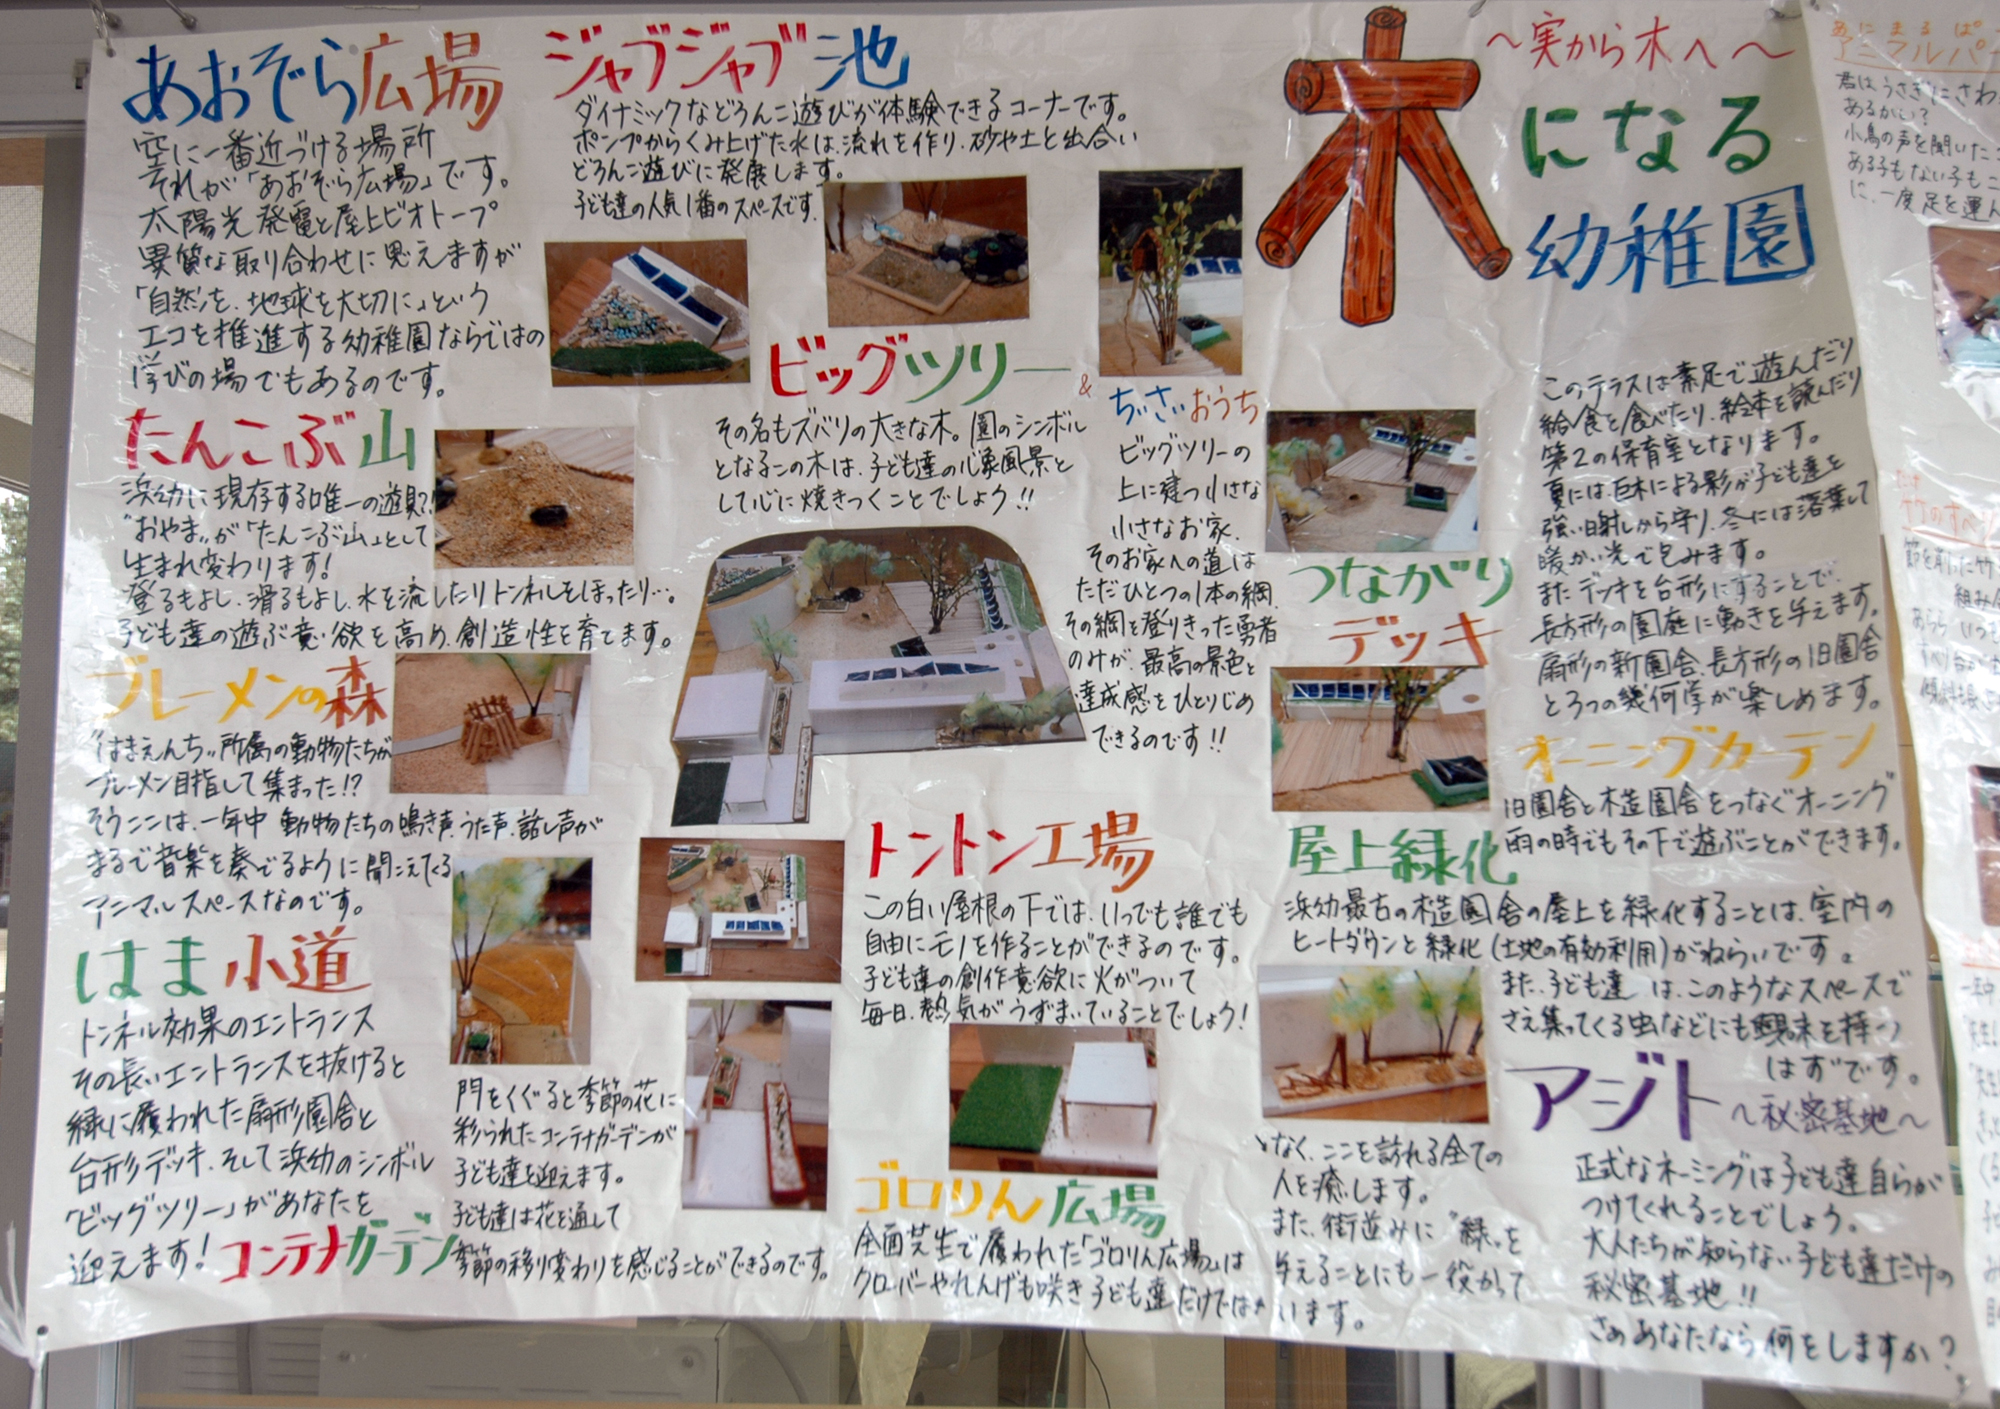 木になる
幼稚園
～実から木へ～
あおぞら広場
空に一番近づける場所
それが「あおぞら広場」です。
太陽光発電と屋上ビオトープ
異質な取り合わせに思えますが
「自然を、地球を大切に」という
エコを推進する幼稚園ならではの
学びの場でもあるのです。
ジャブジャブ池
ダイナミックなどろんこ遊びが体験できるコーナーです。
ポンプからくみ上げた水は、流れを作り、砂や土と出合い
どろんこ遊びに発展します。
子ども達の人気1番のスペースです。
たんこぶ山
浜幼に現存する唯一の遊具?!
"おやま"が「たんこぶ山」として
生まれ変わります!
登るもよし、滑るもよし、水を流したりトンネルをほったり…。
子ども達の遊ぶ意欲を高め、創造性を育てます。
ビッグツリー
&
ちいさいおうち
その名もズバリの大きな木。園のシンボル
となるこの木は、子ども達の心象風景と
して心に焼きつくことでしょう!!
ビッグツリーの
上に建つ小さな
小さなお家、
そのお家への道は
ただひとつの1本の綱、
その綱を登りきった勇者
のみが、最高の景色と
達成感をひとりじめ
できるのです!!
ブレーメンの森
"はまえんち"所属の動物たちが
ブレーメン目指して集まった!?
そうここは、一年中 動物たちの鳴き声、うた声、話し声が
まるで音楽を奏でるように聞こえてくる
アニマルスペースなのです。
はま小道
トンネル効果のエントランス
その長いエントランスを抜けると
緑に覆われた扇形園舎と
台形デッキ、そして浜幼のシンボル
「ビッグツリー」があなたを
迎えます!
コンテナガーデン
門をくぐると季節の花に
彩られたコンテナガーデンが
子ども達を迎えます。
子ども達は花を通して
季節の移り変わりを感じることができるのです。
トントン工場
この白い屋根の下では、いつでも誰でも
自由にモノを作ることができるのです。
子ども達の創作意欲に火がついて
毎日、熱気がうずまいていることでしょう!
ゴロりん広場
全面芝生で覆われた「ゴロりん広場」は
クローバーやれんげも咲き子ども達だけでは
なく、ここを訪れる全ての
人を癒します。
また、街並みに"緑"を
与えることにも一役かって
います。
つながり
デッキ
このテラスは素足で遊んだり
給食を食べたり、絵本を読んだり
第2の保育室となります。
夏には、巨木による影が子ども達を
強い日射しから守り、冬には落葉して
暖かい光で包みます。
またデッキを台形にすることで、
長方形の園庭に動きを与えます。
扇形の新園舎、長方形の旧園舎
とろつの幾何学が楽しめます。
オーニングカーテン
旧園舎と木造園舎をつなぐオーニング
雨の時でもその下で遊ぶことができます。
屋上緑化
浜幼最古の木造園舎の屋上を緑化することは、室内の
ヒートダウンと緑化(土地の有効利用)がねらいです。
また、子ども達は、このようなスペースで
さえ集ってくる虫などにも興味を持つ
はずです。
アジト
～秘密基地～
正式なネーミングは子ども達自らが
つけてくれることでしょう。
大人たちが知らない子ども達だけの
秘密基地!!
さああなたなら何をしますか?
あにまるぱ
アニマルパ
君はうさぎにさわ
あるかい?
小鳥の声を聞いたこ
ある子もない子もこ
に、一度足を運ん